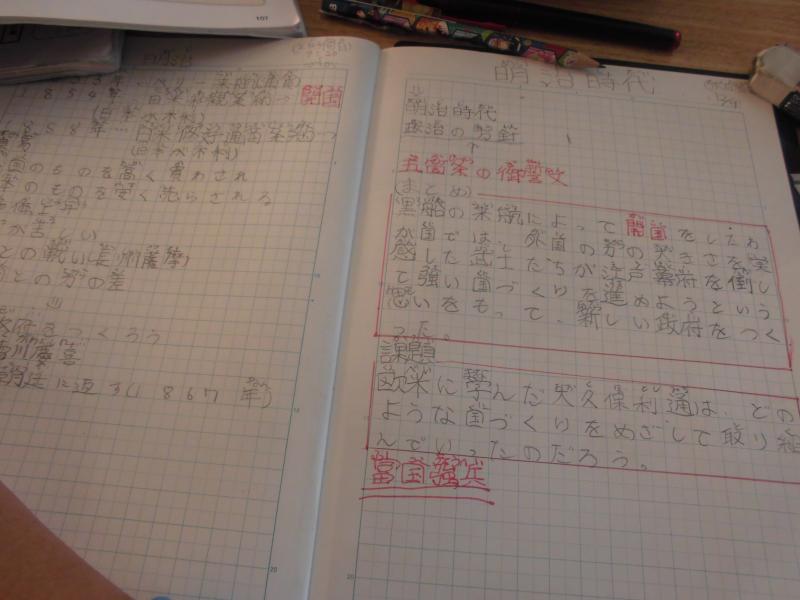 107
明治
1854年…日米和親条約→開国
(日本が不利)
58年…日米修好通商条約→
(日本が不利)
国のものを高く買わされ
のものを安く売らされる
が苦しい
との戦い(長州薩摩)
との力の差
⇓
政府をつくろう
徳川慶喜
朝廷に返す(1867年)
20
明治時代
⇓
明治時代
政治の方針
五箇条の御誓文
(まとめ)
黒船の来航によって開国をしたわ
が国では、外国の力の大きさを実
感した武士たちが江戸幕府を倒し
て強い国づくりを進めようという
思いをもって、新しい政府をつく
った。
課題
欧米に学んだ大久保利通は、どの
ような国づくりをめざして取り組
んでいったのだろう。
富国強兵
20